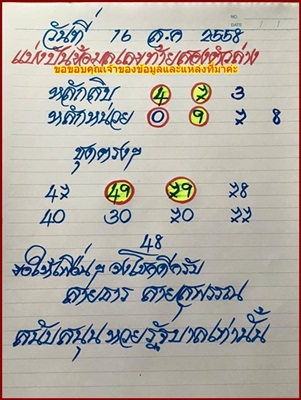 NO.
วันที่ 16 ต.ค 2558
แบ่งปันข้อมูลเลขท้ายสองตัวล่าง
ขอขอบคุณเจ้าของข้อมูลและแหล่งที่มาค่ะ
หลักสิบ 4 7 3
หลักหน่วย 0 9 7 8
ชุดตรงๆ
47 49 79 78
40 30 70 77
48
ขอให้เพื่อนๆ จงโชคดีครับ
สายธาร สายสุพรรณ
สนับสนุนหวยรัฐบาลเท่านั้น